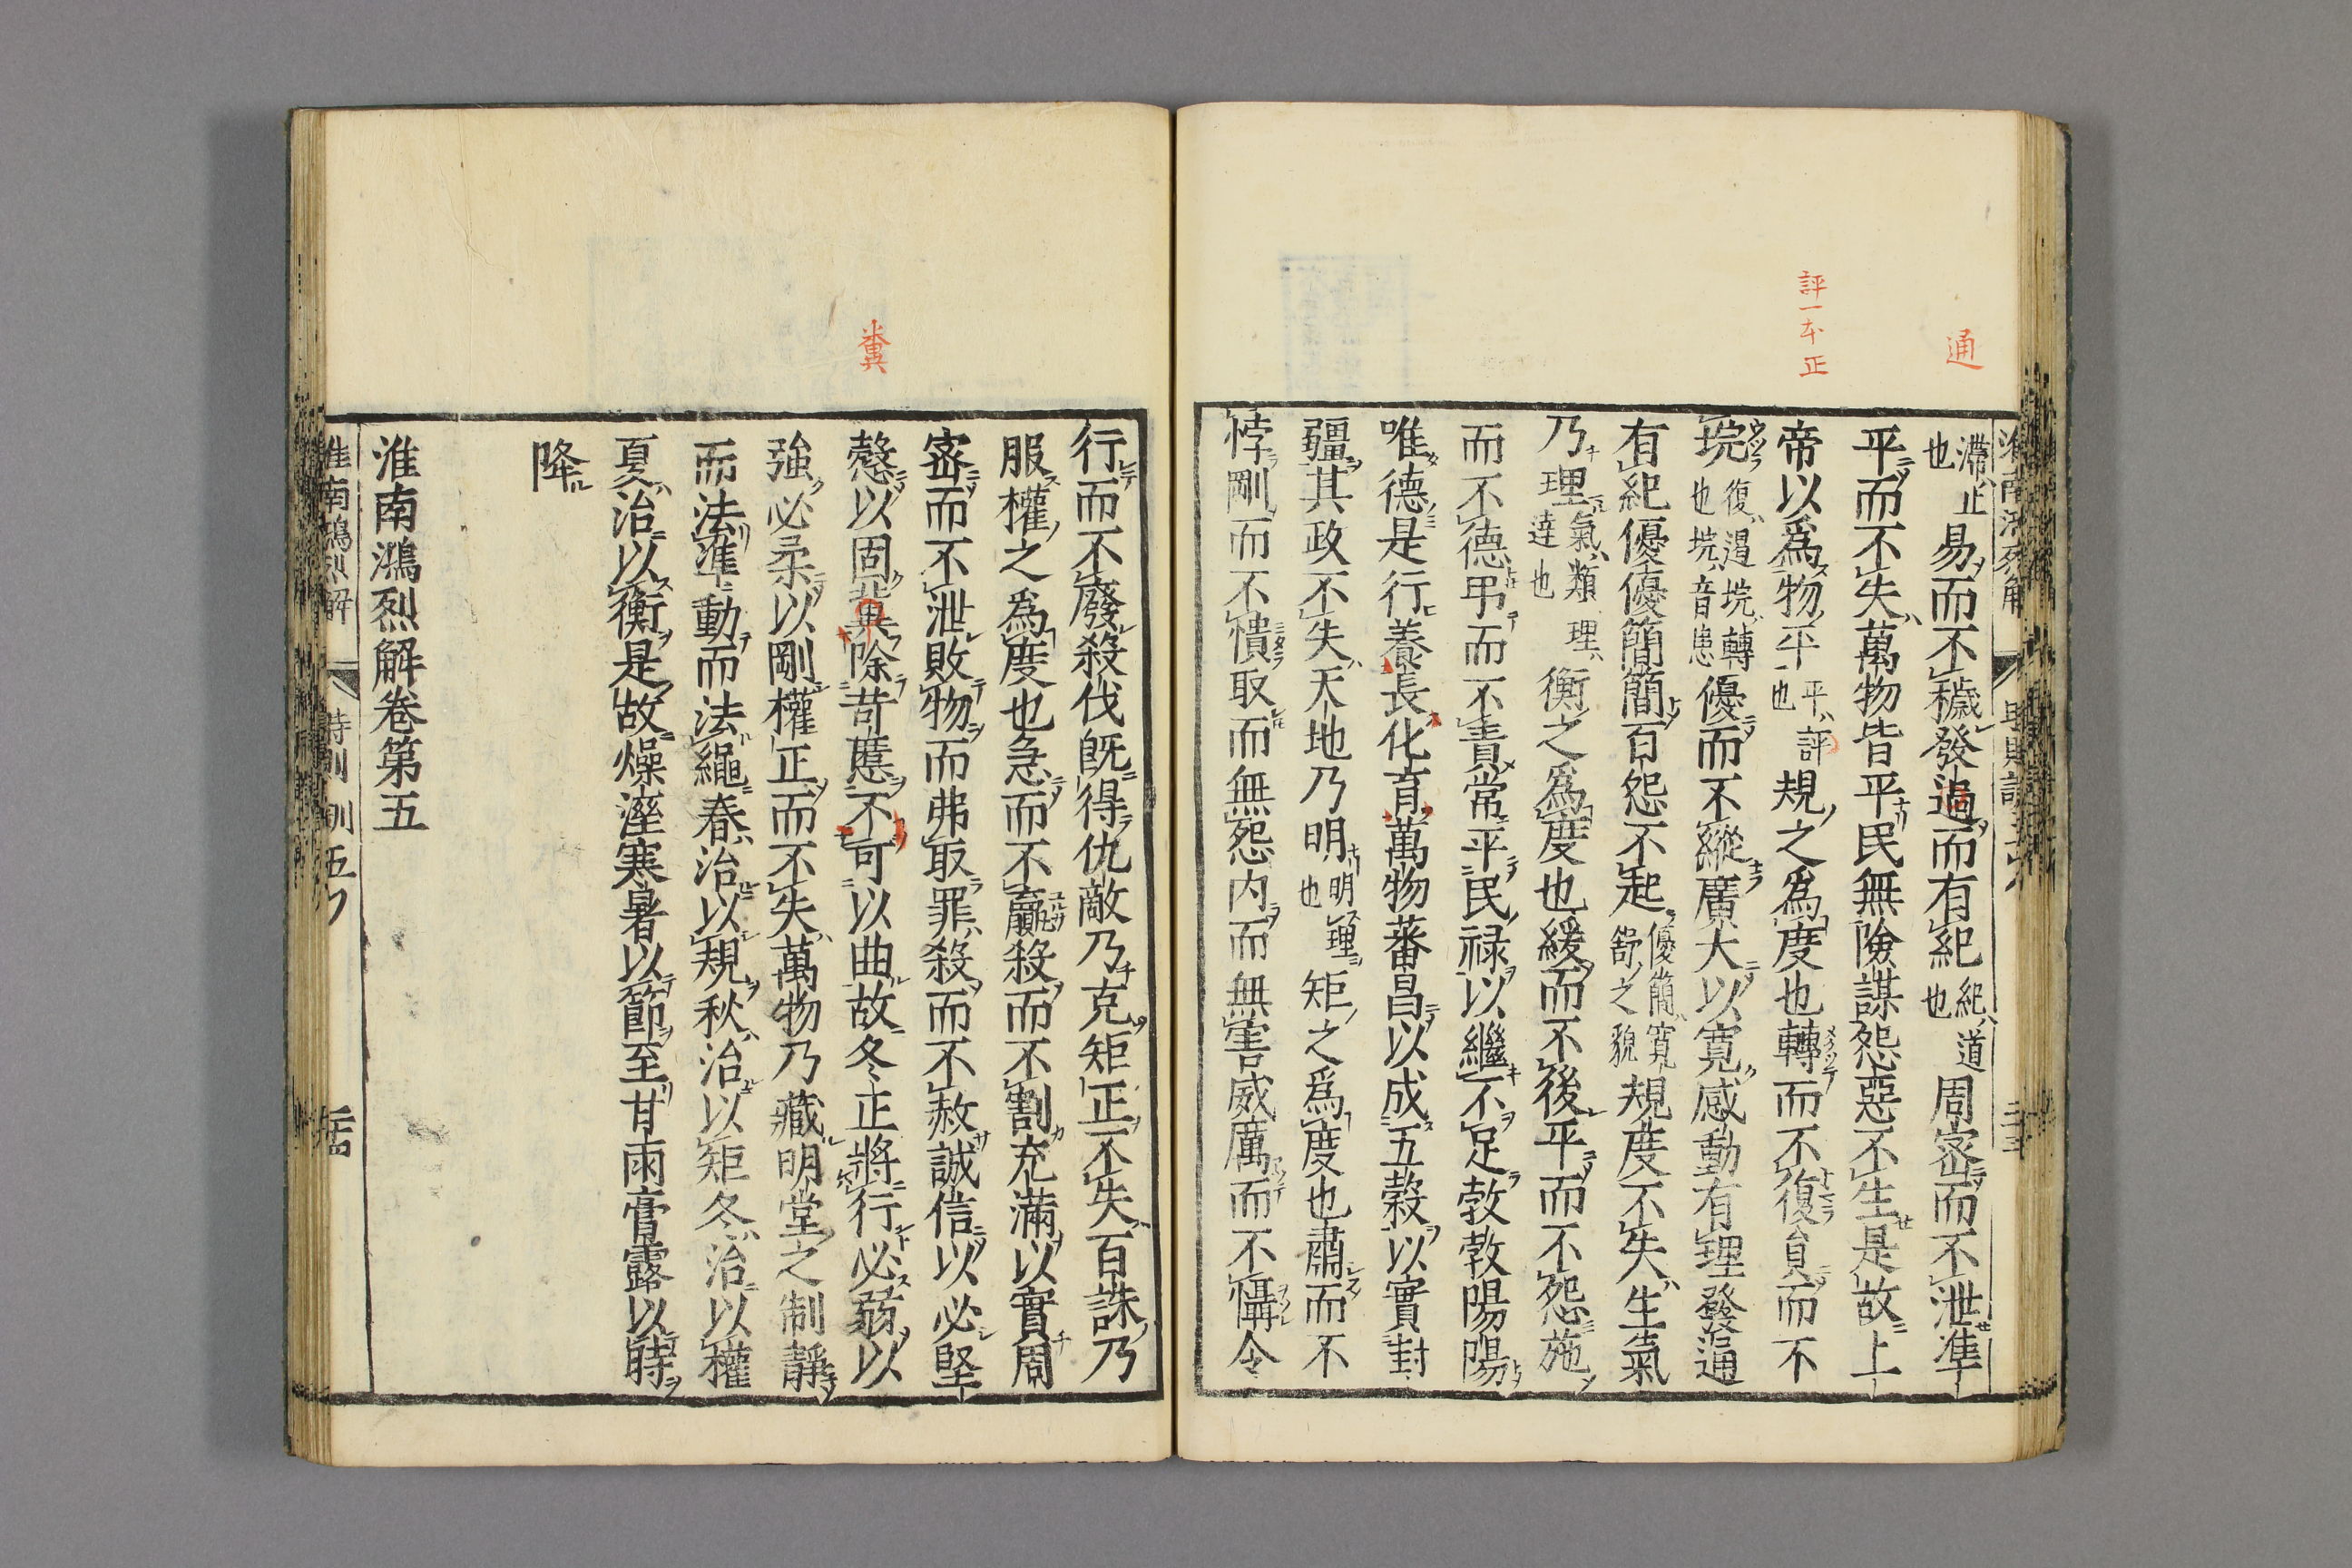 通
評一本正
滯止也易而不穢發過而有紀紀道也周密而不泄準
平而不失萬物皆平民無險謀怨惡不生是故上
帝以爲物平平評也規之爲度也轉而不復員而不
垸復遏垸轉也垸音患優而不縱廣大以寬感動有理發通
有紀優優簡簡百怨不起優簡寬舒之貌規度不失生氣
乃理氣類理達也衡之爲度也緩而不後平而不怨施
而不德弔而不責常平民祿以繼不足敦敦陽陽
唯德是行養長化育萬物蕃昌以成五穀以實封
疆其政不失天地乃明明理也矩之爲度也肅而不
悖剛而不憒取而無怨内而無害威厲而不懾令
糞
行而不廢殺伐既得仇敵乃克矩正不失百誅乃
服權之爲度也急而不贏殺而不割充滿以實周
密而不泄敗物而弗取罪殺而不赦誠信以必堅
愨以固糞除苛慝不可以曲故冬正將行必弱以
強必柔以剛權正而不失萬物乃藏明堂之制靜
而法準動而法繩春治以規秋治以矩冬治以權
夏治以衡是故燥溼寒暑以節至甘雨膏露以時
降
淮南鴻烈解卷第五
淮南鴻烈解 時則訓五